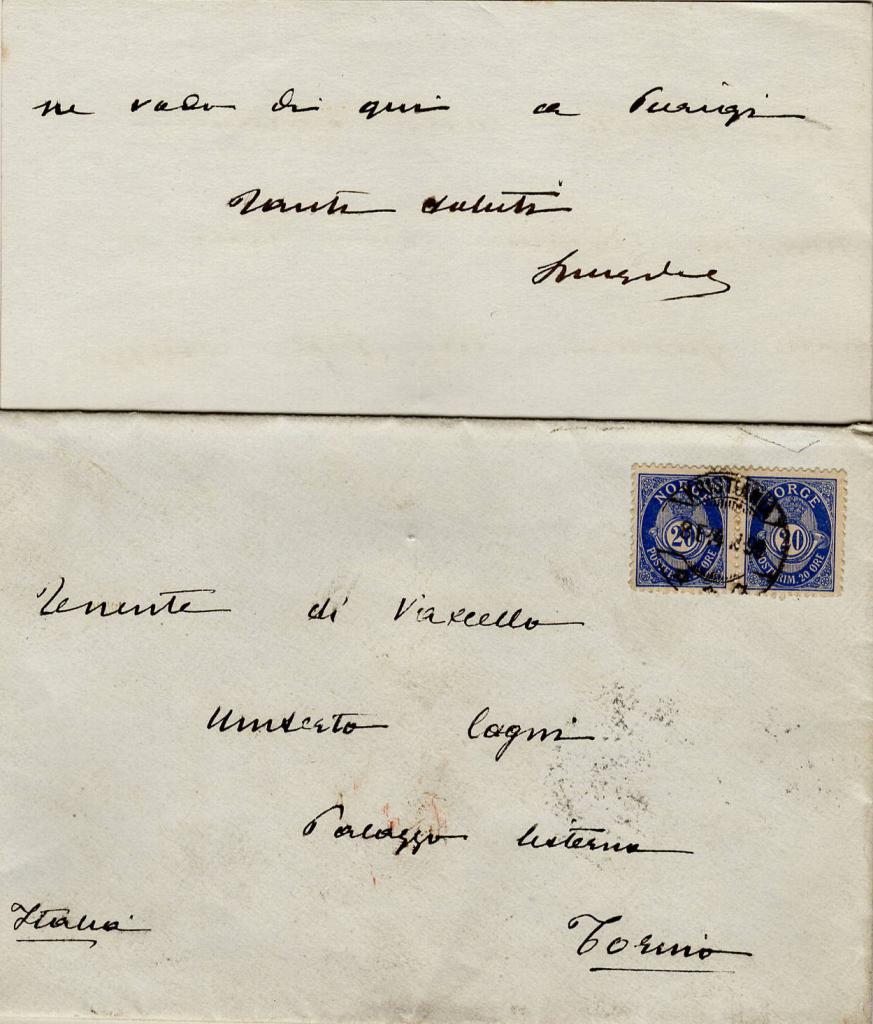 me vado di qui a Parigi
Tanti saluti
NORGE NORGE
KRISTIANIA
20 20
POSTFRIM. 20 ØRE
Tenente di Vascello
Umberto Cagni
Palazzo Cisterna
Italia
Torino